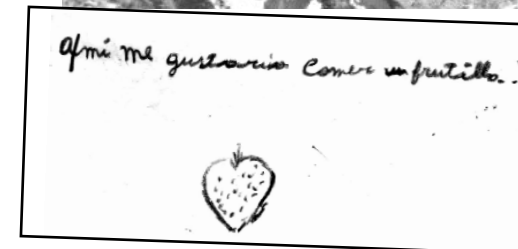 A mi me gustaria comer un frutilla.